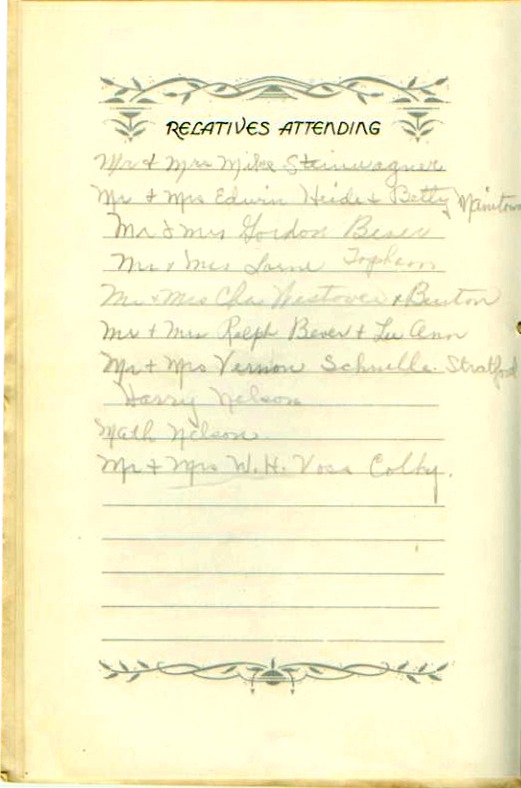 RELATIVES ATTENDING
Mr & Mrs Mike Steinwagner
Mr & Mrs Edwin Heide & Betty Manitowoc
Mr & Mrs Gordon Bever
Mr & Mrs Lorne Topham
Mr & Mrs Chas Westover & Burton
Mr & Mrs Ralph Bever & Lu Ann
Mr & Mrs Vernon Schnelle. Stratford
Harry Nelson
Math Nelson.
Mr & Mrs W. H. Voss Colby.